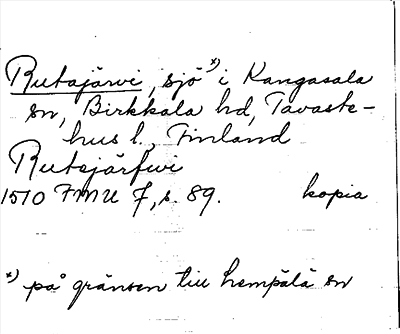 Rutajärvi, sjö x) i Kangasala
sn, Birkkala hd, Tavaste-
hus l., Finland
Rutajärfwi
1510 FMU 7, s. 89. kopia
x) på gränsen till hempälä sn